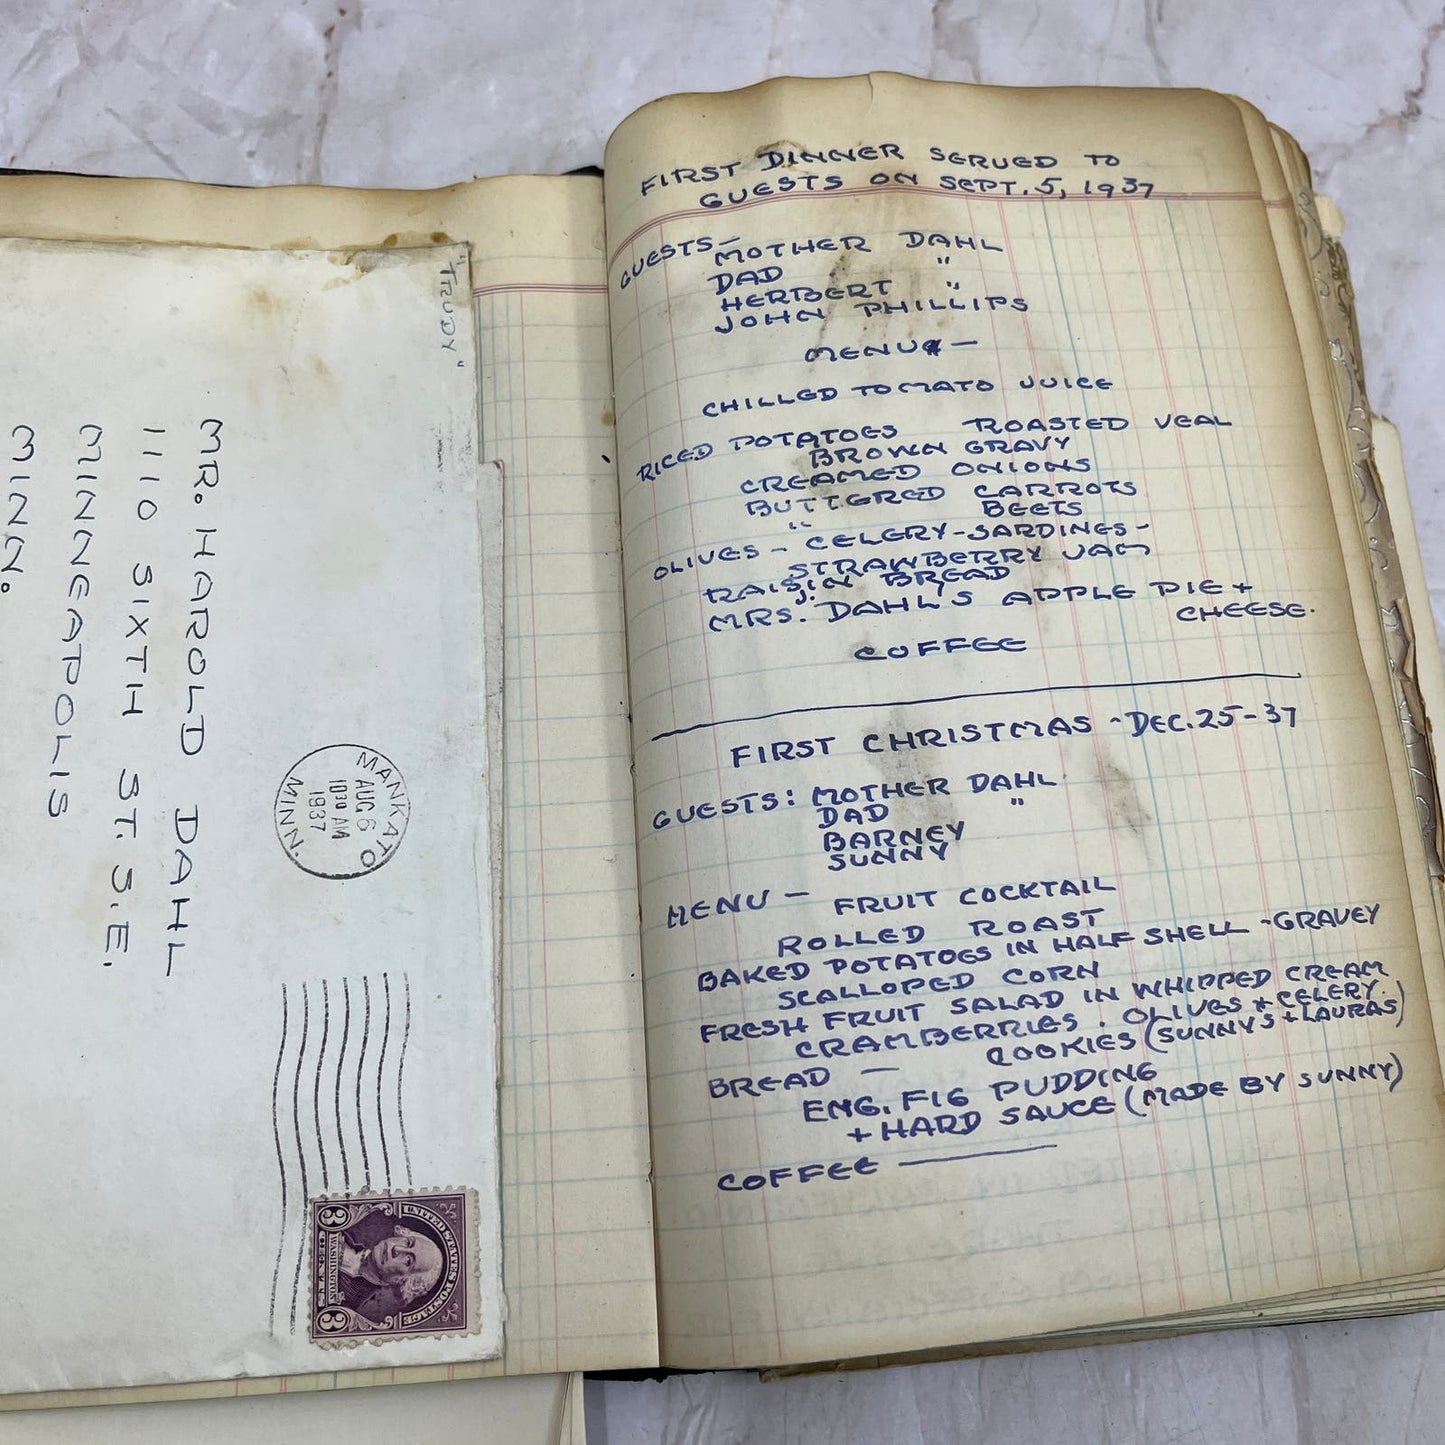 "TRUDY"
MR. HAROLD DAHL
1110 SIXTH ST. S.E.
MINNEAPOLIS
MINN.
MANKATO
AUG 6
1030 AM
1937
MINN.
UNITED STATES POSTAGE
WASHINGTON
3 CENTS 3
FIRST DINNER SERVED TO
GUESTS ON SEPT. 5, 1937
GUESTS— MOTHER DAHL
DAD "
HERBERT "
JOHN PHILLIPS
MENU —
CHILLED TOMATO JUICE
RICED POTATOES ROASTED VEAL
BROWN GRAVY
CREAMED ONIONS
BUTTERED CARROTS
" BEETS
OLIVES - CELERY - SARDINES -
STRAWBERRY JAM
RAISIN BREAD
MRS. J. DAHL'S APPLE PIE +
CHEESE.
COFFEE
FIRST CHRISTMAS - DEC. 25-37
GUESTS: MOTHER DAHL
DAD "
BARNEY
SUNNY
MENU — FRUIT COCKTAIL
ROLLED ROAST
BAKED POTATOES IN HALF SHELL - GRAVEY
SCALLOPED CORN
FRESH FRUIT SALAD IN WHIPPED CREAM
CRAMBERRIES. OLIVES + CELERY.
BREAD — COOKIES (SUNNYS + LAURAS)
ENG. FIG PUDDING
+ HARD SAUCE (MADE BY SUNNY)
COFFEE —